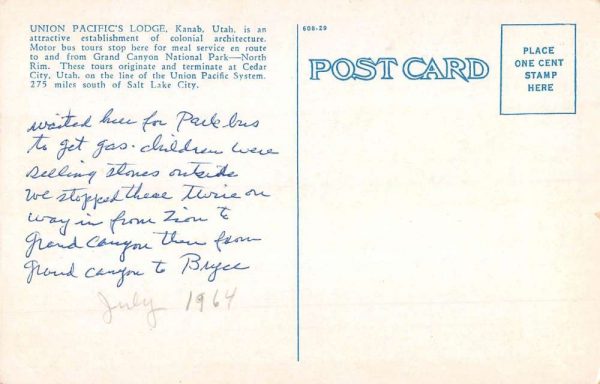 UNION PACIFIC'S LODGE, Kanab, Utah, is an
attractive establishment of colonial architecture.
Motor bus tours stop here for meal service en route
to and from Grand Canyon National Park—North
Rim. These tours originate and terminate at Cedar
City, Utah, on the line of the Union Pacific System.
275 miles south of Salt Lake City.
waited here for Park bus
to get gas. children were
selling stones outside
we stopped there twice on
way in from Zion to
Grand Canyon then from
Grand canyon to Bryce
July 1964
608-29
POST CARD
PLACE
ONE CENT
STAMP
HERE